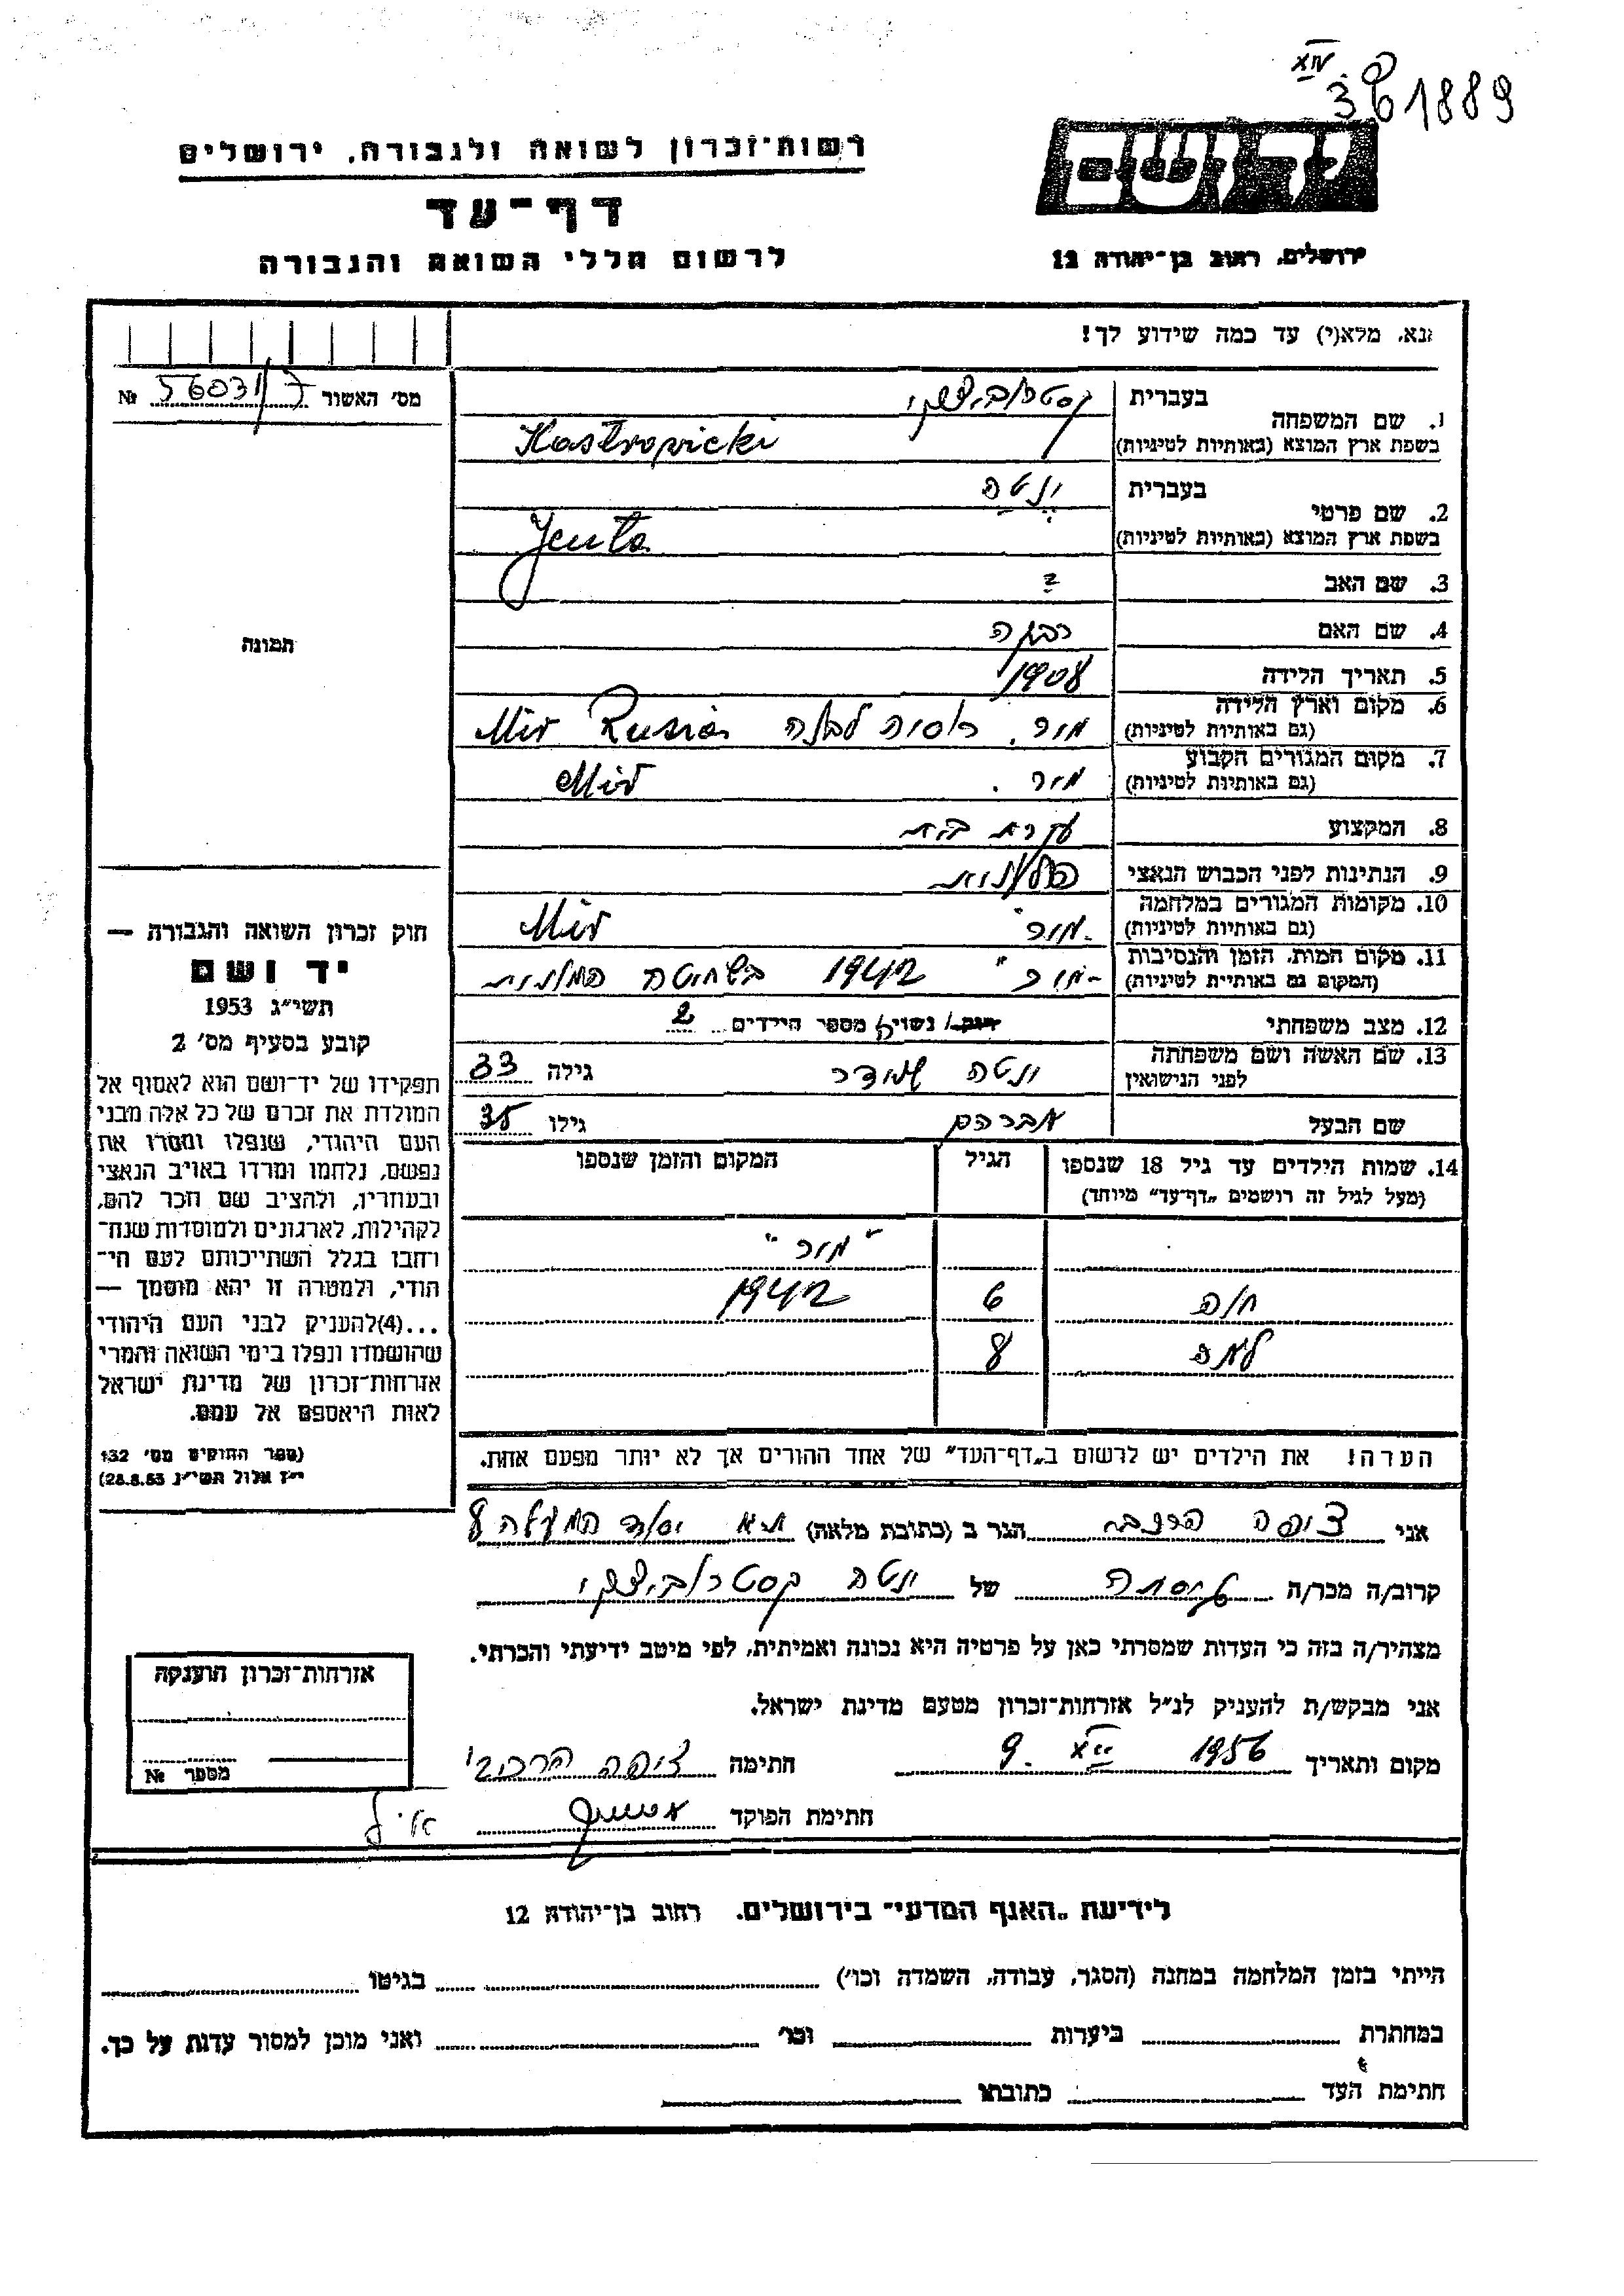 XIV
3 1889
רשות-זכרון לשואה ולגבורה, ירושלים
דף-עד
לרשום חללי השואה והגבורה
יד ושם
ירושלים, רחוב בן-יהודה 12
נא, מלא(י) עד כמה שידוע לך!
מס׳ האשור 56031/7 №
1. שם המשפחה
בעברית קסטרוביצקי
בשפת ארץ המוצא (באותיות לטיניות) Kastrovicki
2. שם פרטי
בעברית ינטה
בשפת ארץ המוצא (באותיות לטיניות) Jenta
3. שם האב ?
4. שם האם רבקה
5. תאריך הלידה 1908
6. מקום וארץ הלידה
(גם באותיות לטיניות) מיר. רוסיה לבנה Mir Rusia
7. מקום המגורים הקבוע
(גם באותיות לטיניות) מיר. Mir
8. המקצוע עקרת בית
9. הנתינות לפני הכבוש הנאצי פולנית
10. מקומות המגורים במלחמה
(גם באותיות לטיניות) "מיר" Mir
11. מקום המות, הזמן והנסיבות
(המקום גם באותיית לטיניות) "מיר" 1942 בשחיטה המונית
12. מצב משפחתי רוק/ נשוי/ה מספר הילדים 2
13. שם האשה ושם משפחתה
לפני הנישואין ינטה גילה 33
שם הבעל אברהם גילו 35
14. שמות הילדים עד גיל 18 שנספו
(מעל לגיל זה רושמים „דף-עד" מיוחד)
הגיל
המקום והזמן שנספו
"מיר"
חנה 6 1942
8
הערה! את הילדים יש לרשום ב„דף-העד" של אחד ההורים אך לא יותר מפעם אחת.
תמונה
חוק זכרון השואה והגבורה —
יד ושם
תשי״ג 1953
קובע בסעיף מס׳ 2
תפקידו של יד-ושם הוא לאסוף אל
המולדת את זכרם של כל אלה מבני
העם היהודי, שנפלו ומסרו את
נפשם, נלחמו ומרדו באויב הנאצי
ובעוזריו, ולהציב שם וזכר להם,
לקהילות, לארגונים ולמוסדות שנח־
רחבו בגלל השתייכותם לעם הי־
הודי, ולמטרה זו יהא מוסמך —
...(4)להעניק לבני העם היהודי
שהושמדו ונפלו בימי השואה והמרי
אזרחות-זכרון של מדינת ישראל
לאות היאספם אל עמם.
(ספר החוקים מס׳ 132
י״ז אלול תשי״ג 28.8.53)
אני ציפה הגר ב (כתובת מלאה) ת״א יסוד המעלה 8
קרוב/ה מכר/ה גיסתה של ינטה קסטרוביצקי
מצהיר/ה בזה כי העדות שמסרתי כאן על פרטיה היא נכונה ואמיתית, לפי מיטב ידיעתי והכרתי.
אני מבקש/ת להעניק לנ״ל אזרחות-זכרון מטעם מדינת ישראל.
מקום ותאריך 1956 XII 9. חתימה ציפה
חתימת הפוקד
אזרחות-זכרון הוענקה
מספר №
לידיעת „האגף המדעי" בירושלים, רחוב בן-יהודה 12
הייתי בזמן המלחמה במחנה (הסגר, עבודה, השמדה וכו׳) בגיטו
במחתרת ביערות וכו׳ ואני מוכן למסור עדות על כך.
חתימת העד כתובתו